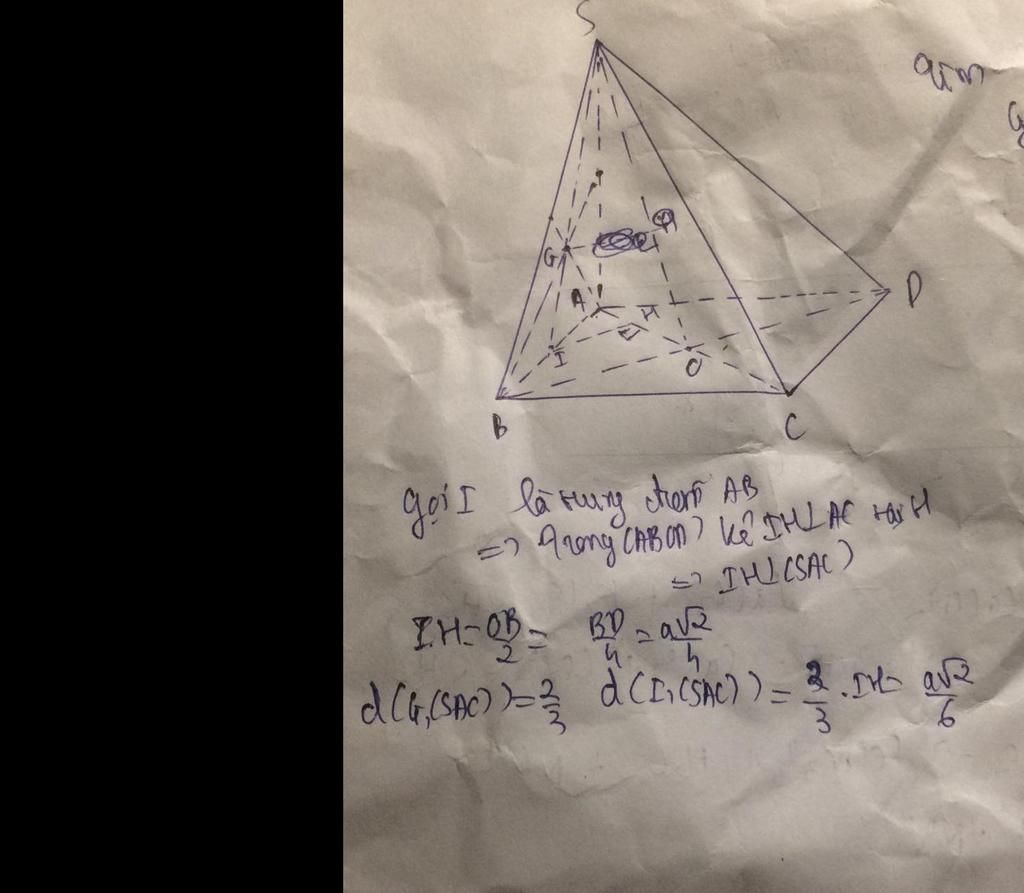 S
G
A
H
I
O
D
B
C
Gọi I là trung điểm AB
=> Trong (ABCD) kẻ IH⊥AC tại H
=> IH⊥(SAC)
IH = OB/2 = BD/4 = a√2/4
d(G,(SAC)) = 2/3 d(I,(SAC)) = 2/3 . IH = a√2/6